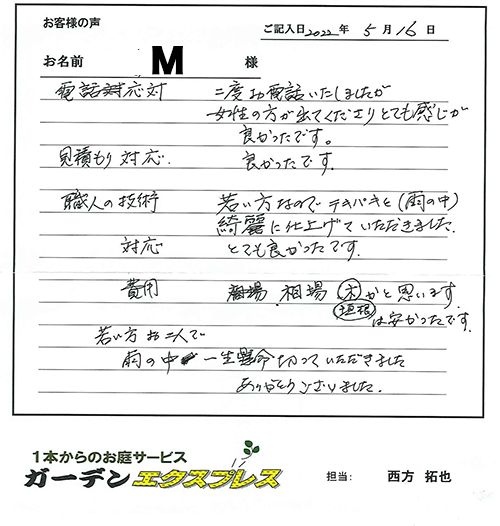 お客様の声
ご記入日 2022年 5月16日
お名前 M 様
電話対応対 二度お電話いたしましたが
女性の方が出てくださりとても感じが
良かったです。
見積もり対応. 良かったです.
職人の技術 若い方なのでテキパキと(雨の中)
綺麗に仕上げていただきました.
対応 とても良かったです.
費用 相場 木かと思います.
垣根は安かったです.
若い方お二人で
雨の中 一生懸命切っていただきました
ありがとうございました.
1本からのお庭サービス
ガーデンエクスプレス 担当: 西方 拓也